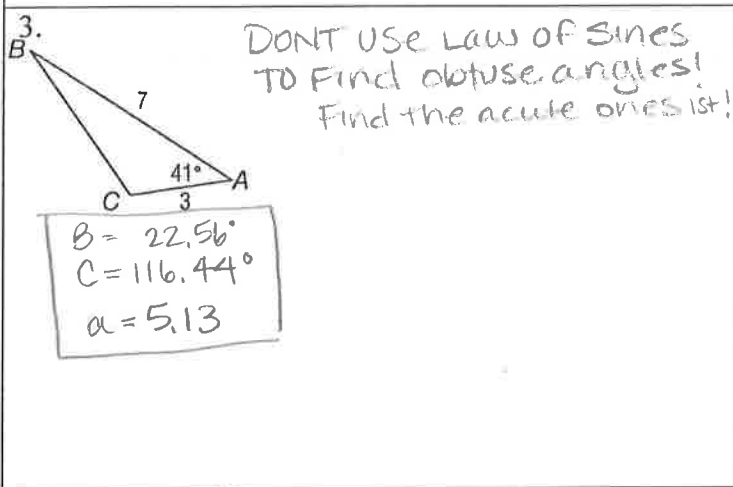 3.
DONT USe Law OF Sines
TO Find obtuse angles!
Find the acute ones 1st!
B
7
41°
A
C
3
B = 22.56°
C = 116.44°
a = 5.13